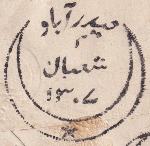 حیدرآباد
شعبان
۱۳۰۷